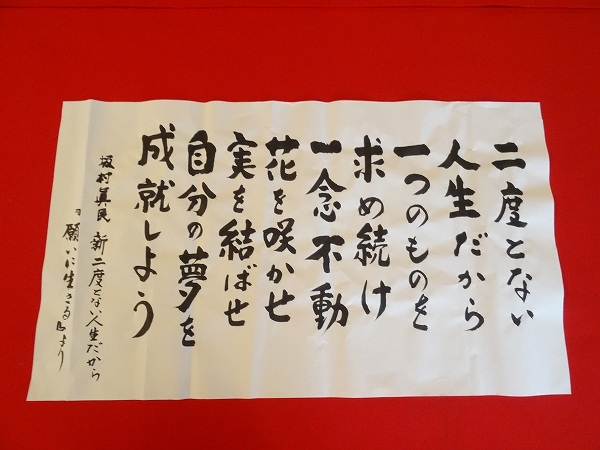 二度とない
人生だから
一つのものを
求め続け
一念不動
花を咲かせ
実を結ばせ
自分の夢を
成就しよう
坂村眞民 新二度とない人生だから
『願いに生きる』より